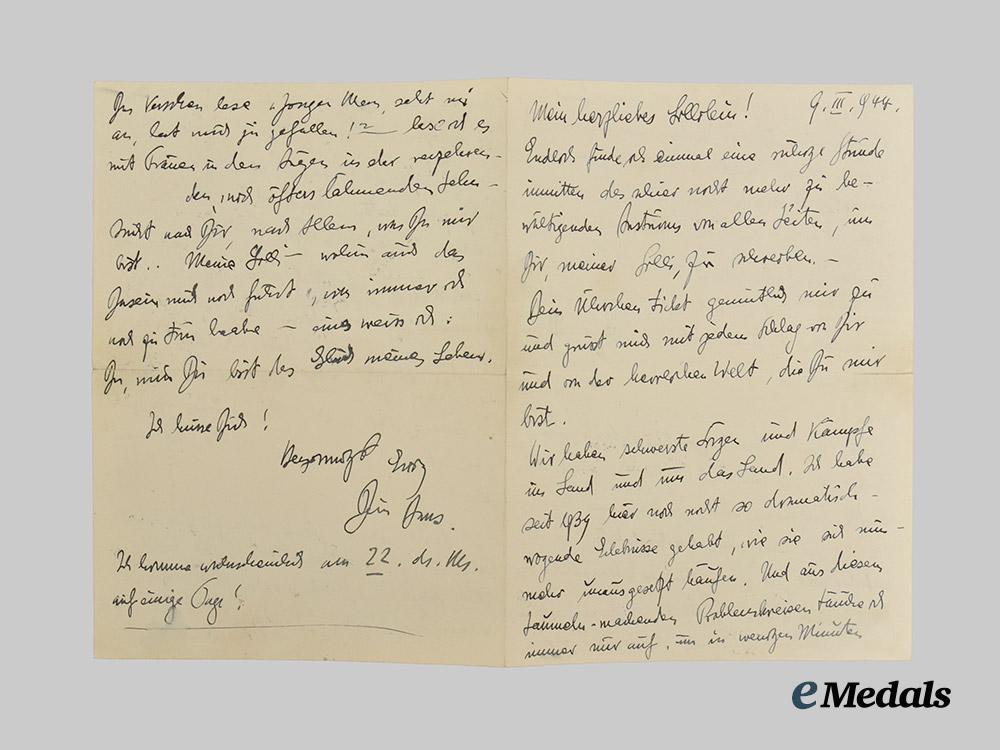 9. III. 944.
Mein herzliches Lillilein!
Endlich finde ich einmal eine ruhige Stunde
inmitten des schier nicht mehr zu be-
wältigenden Ansturms von allen Seiten, um
Dir, meiner Lilli, zu schreiben. –
Dein Ührchen tickt gemütlich mir zu
und grüsst mich mit jedem Schlag von Dir
und von der herrlichen Welt, die Du mir
bist.
Wir haben schwerste Sorgen und Kämpfe
im Land und um das Land. Ich habe
seit 1939 hier noch nicht so dramatisch-
wogende Erlebnisse gehabt, wie sie sich nun-
mehr unausgesetzt häufen. Und aus diesem
taumeln-machenden Problemkreisen tauche ich
immer nur auf, um in wenigen Minuten
an, hat mich zu gefallen! – lese ich es
mit Tränen in den Augen in der verzehren-
den, mich öfters lähmenden Sehn-
sucht nach Dir, nach Allem, was Du mir
bist.. Meine Lilli – wohin auch das
Dasein mich noch führt, was immer ich
noch zu tun habe – eines weiss ich:
Du, nur Du bist das Glück meines Lebens.
Ich küsse Dich!
Ewig
Dein
Ich komme wahrscheinlich am 22. ds. Mts.
auf einige Tage!
eMedals